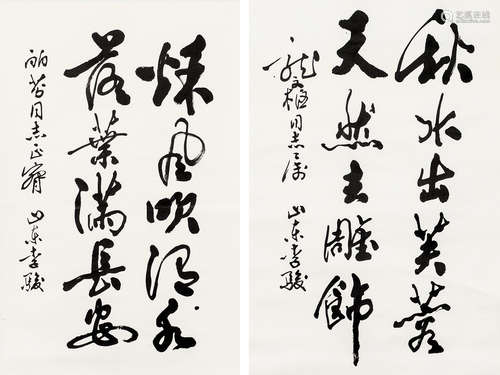 秋水出芙蓉
天然去雕飾
龍權同志之属
山东李駿
秋風吹渭水
落葉滿長安
丽芬同志正宾
山东李駿